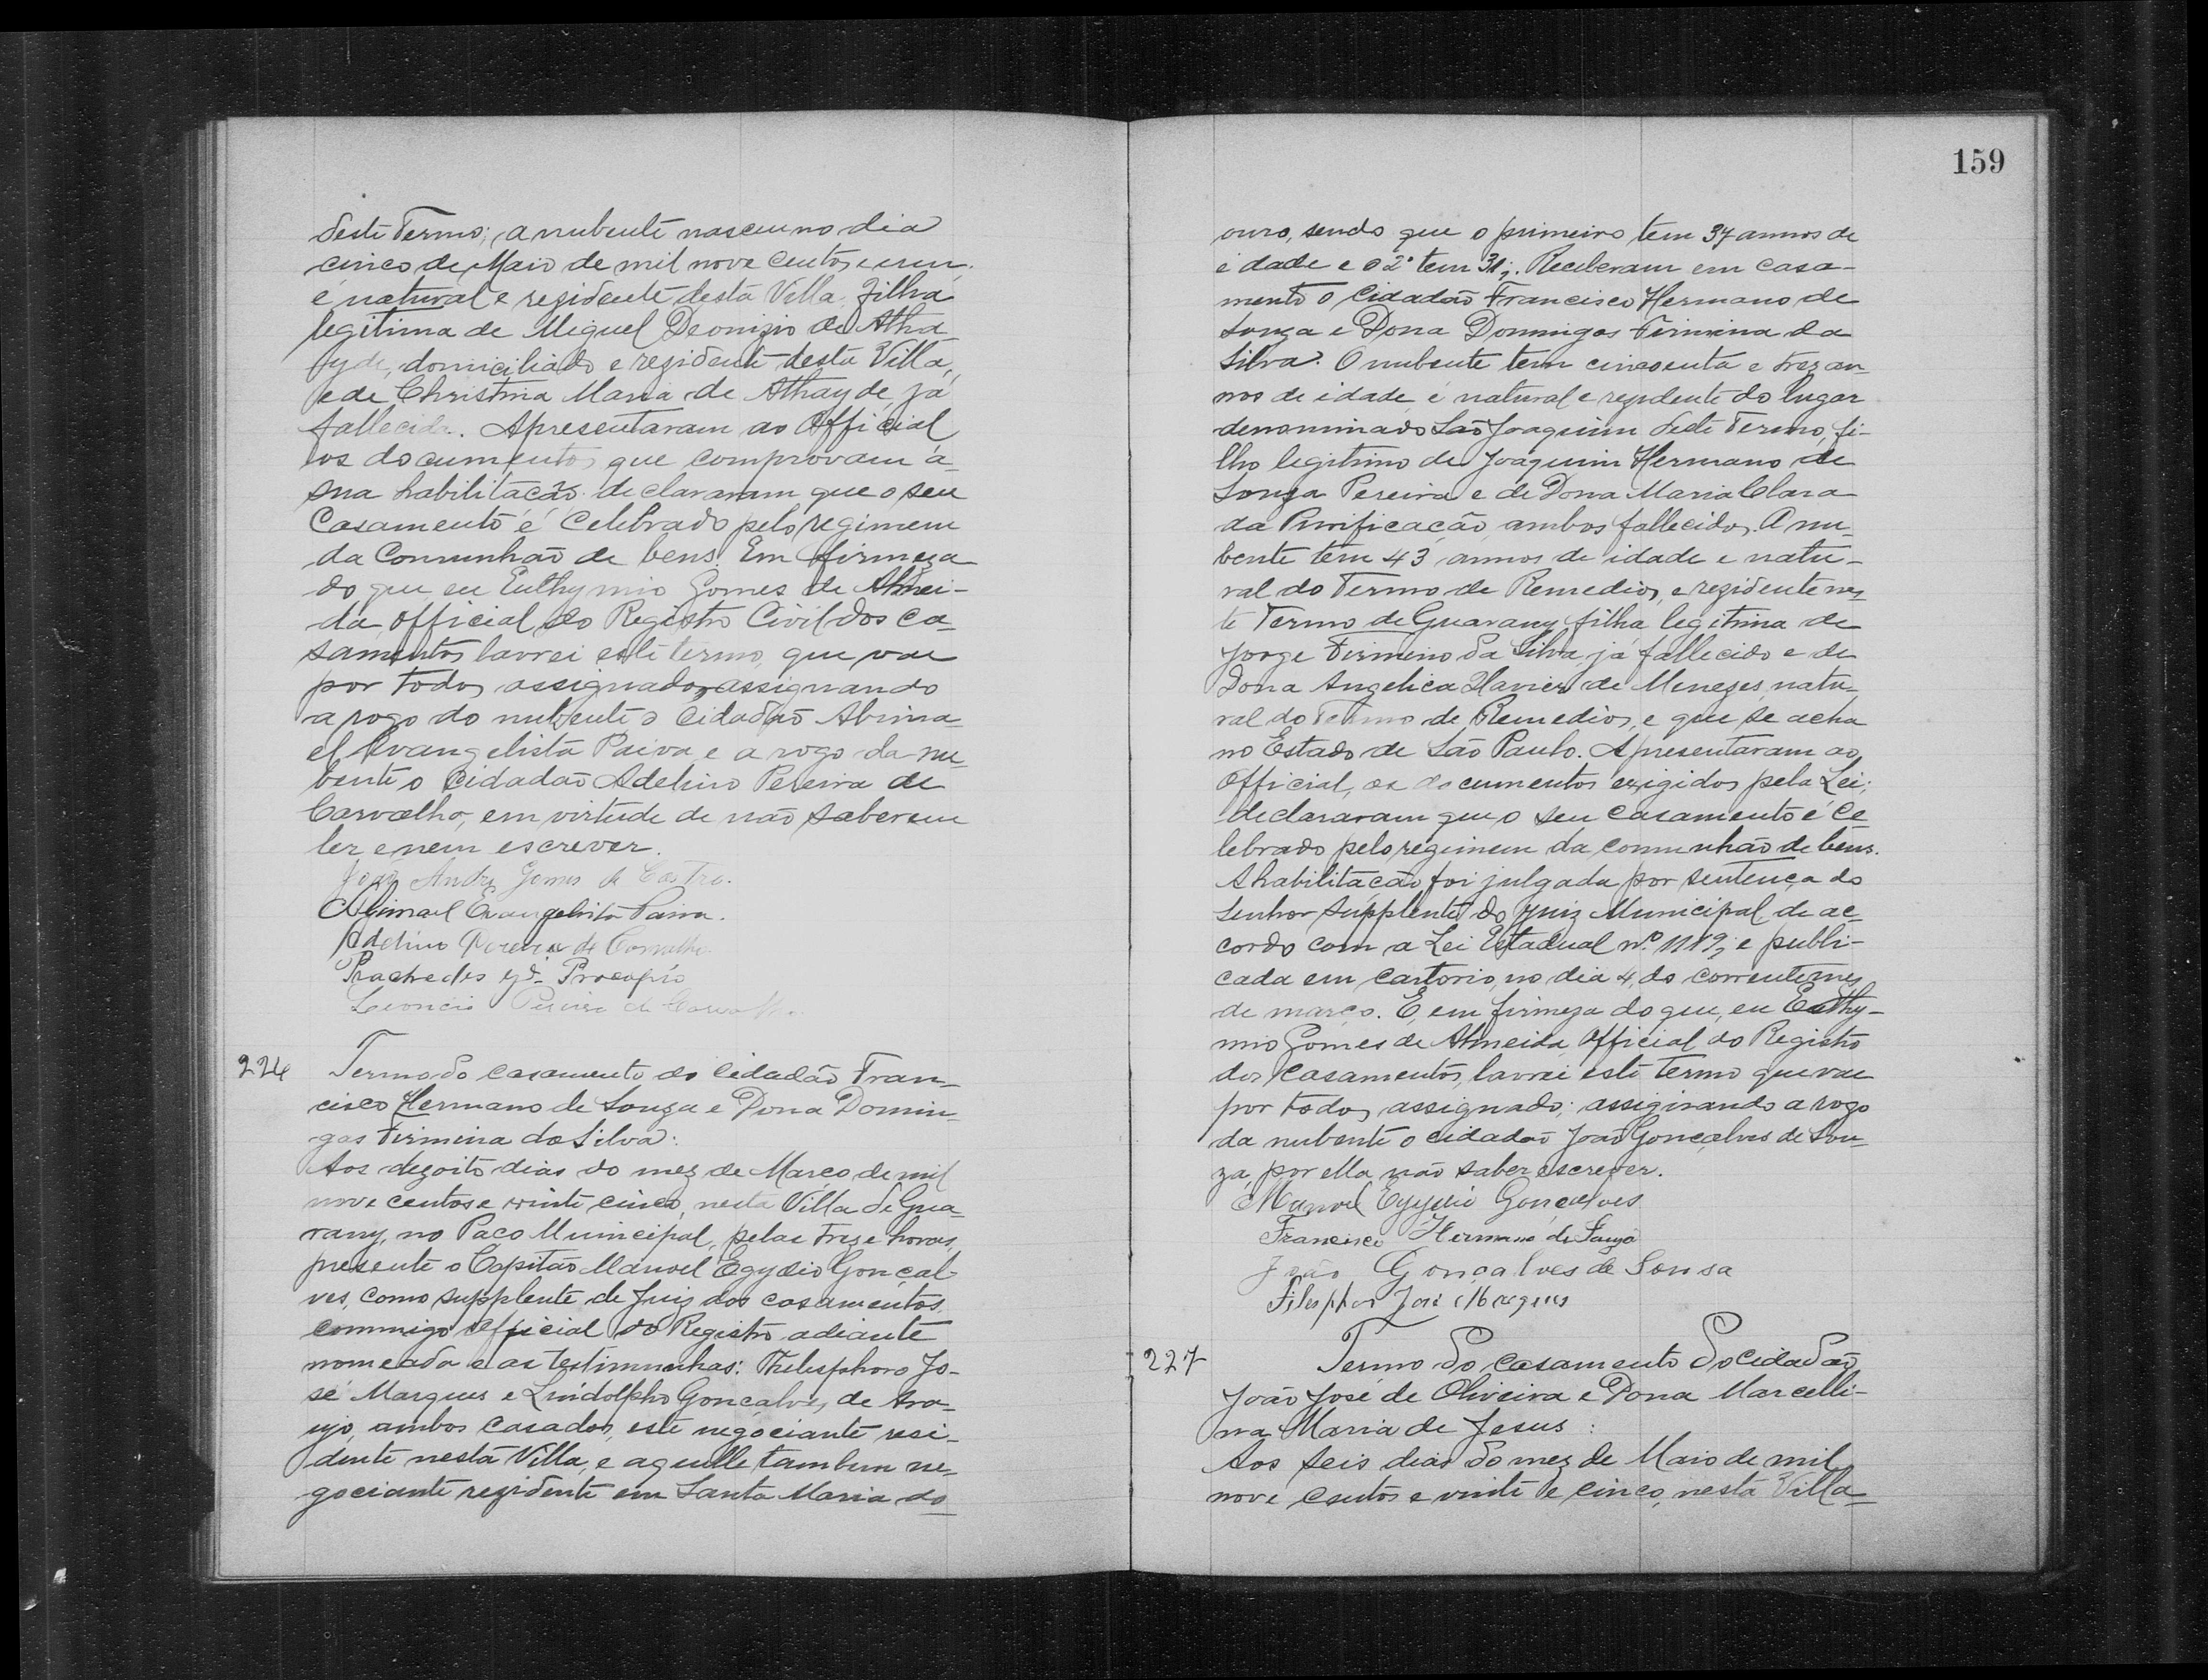 deste Termo; a nubente nasceu no dia
cinco de Maio de mil nove centos e um.
é natural e rezidente desta Villa, filha
legitima de Miguel Deonizio de Atha
yde, domiciliado e rezidente desta Villa,
e de Christina Maria de Athayde já
fallecida. Apresentaram ao Official
os documentos que comprovam a
sua habilitação. declararam que o seu
Casamento é Celebrado pelo regimem
da Comunhão de bens. Em firmeza
do que eu Euthymio Gomes de Almei-
da official do Registro Civil dos ca-
samentos lavrei este termo, que vae
por todos assignados, assignando
a rogo do nubente o Cidadão Abima-
el Evangelista Paiva e a rogo da nu-
bente o Cidadão Adelino Pereira de
Carvalho, em virtude de não saberem
ler e nem escrever.
João André Gomes de Castro.
Abimael Evangelista Paiva.
Adelino Pereira de Carvalho
Prachedes Procopio
Leoncio Pereira de Carvalho.
224 Termo do casamento do Cidadão Fran-
cisco Hermano de Souza e Dona Domin-
gas Firmina da Silva:
Aos dezoito dias do mez de Março de mil
nove centos e vinte cinco, nesta Villa de Gua-
rany, no Paço Municipal, pelas treze horas,
presente o Capitão Manoel Egydio Gonçal-
ves, como supplente de Juiz dos casamentos,
commigo official do Registro adiante
nomeado e as testimunhas: Thelesphoro Jo-
sé Marques e Lindolpho Gonçalves de Ara-
ujo, ambos casados, este negociante resi-
dente nesta Villa, e aquelle tambem ne-
gociante rezidente em Santa Maria do
159
ouro, sendo que o primeiro tem 37 annos de
idade e o 2º tem 31;. Receberam em casa-
mento o Cidadão Francisco Hermano de
Souza e Dona Domingas Firmina da
Silva. O nubente tem cincoenta e trez an-
nos de idade, é natural e rezidente do lugar
denominado São Joaquim deste Termo, fi-
lho legitimo de Joaquim Hermano de
Souza Pereira e de Dona Maria Clara
da Purificação, ambos fallecidos. A nu-
bente tem 43 annos de idade e natu-
ral do Termo de Remedios, e rezidente nes
te Termo de Guarany, filha legitima de
Jorge Firmino da Silva, já fallecido e de
Dona Angelica Xavier de Menezes, natu-
ral do Termo de Remedios, e que se acha
no Estado de São Paulo. Apresentaram ao
Official, os documentos exigidos pela Lei;
declararam que o seu casamento é Ce
lebrado pelo regimem da comunhão de bens.
A habilitação foi julgada por sentença do
Senhor Supplente do Juiz Municipal, de ac-
cordo com a Lei Estadual nº. 1189; e publi-
cada em cartorio, no dia 4, do corrente mes
de março. E, em firmeza do que, eu Euthy-
mio Gomes de Almeida, Official do Registro
dos Casamentos, lavrei este Termo que vae
por todos assignado; assignando a rogo
da nubente o cidadão João Gonçalves de Sou-
za, por ella não saber escrever.
Manoel Egydio Gonçalves
Francisco Hermano de Souza
João Gonçalves de Sousa
José Marques
227 Termo do Casamento do Cidadão
João José de Oliveira e Dona Marcelli-
na Maria de Jesus:
Aos seis dias do mez de Maio de mil
nove centos e vinte e cinco, nesta Villa